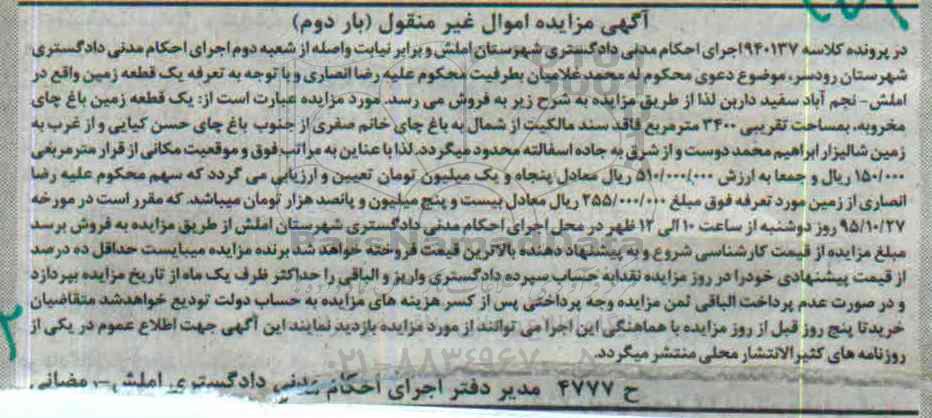 آگهی مزایده اموال غیر منقول (بار دوم)
در پرونده کلاسه ۹۴۰۱۳۷ اجرای احکام مدنی دادگستری شهرستان املش و برابر نیابت واصله از شعبه دوم اجرای احکام مدنی دادگستری
شهرستان رودسر، موضوع دعوی محکوم له محمد غلامیان بطرفیت محکوم علیه رضا انصاری و با توجه به تعرفه یک قطعه زمین واقع در
املش- نجم آباد سفید داربن لذا از طریق مزایده به شرح زیر به فروش می رسد. مورد مزایده عبارت است از: یک قطعه زمین باغ چای
مخروبه، بمساحت تقریبی ۳۴۰۰ مترمربع فاقد سند مالکیت از شمال به باغ چای خانم صفری از جنوب باغ چای حسن کیایی و از غرب به
زمین شالیزار ابراهیم محمد دوست و از شرق به جاده اسفالته محدود میگردد. لذا با عنایت به مراتب فوق و موقعیت مکانی از قرار متر مربعی
۱۵۰/۰۰۰ ریال و جمعا به ارزش ۵۱۰/۰۰۰/۰۰۰ ریال معادل پنجاه و یک میلیون تومان تعیین و ارزیابی می گردد که سهم محکوم علیه رضا
انصاری از زمین مورد تعرفه فوق مبلغ ۲۵۵/۰۰۰/۰۰۰ ریال معادل بیست و پنج میلیون و پانصد هزار تومان میباشد. که مقرر است در مورخه
۹۵/۱۰/۲۷ روز دوشنبه از ساعت ۱۰ الی ۱۲ ظهر در محل اجرای احکام مدنی دادگستری شهرستان املش از طریق مزایده به فروش برسد
مبلغ مزایده از قیمت کارشناسی شروع و به پیشنهاد دهنده بالاترین قیمت فروخته خواهد شد برنده مزایده میبایست حداقل ده درصد
از قیمت پیشنهادی خود را در روز مزایده نقدا به حساب سپرده دادگستری واریز و الباقی را حداکثر ظرف یک ماه از تاریخ مزایده بپردازد
و در صورت عدم پرداخت الباقی ثمن مزایده وجه پرداختی پس از کسر هزینه های مزایده به حساب دولت تودیع خواهد شد متقاضیان
خرید تا پنج روز قبل از روز مزایده با هماهنگی این اجرا می توانند از مورد مزایده بازدید نمایند این آگهی جهت اطلاع عموم در یکی از
روزنامه های کثیرالانتشار محلی منتشر میگردد.
۰۲۱-۸۸۳۴۹۶۷۰-۵
ح ۴۷۷۷ مدیر دفتر اجرای احکام مدنی دادگستری املش- رمضانی